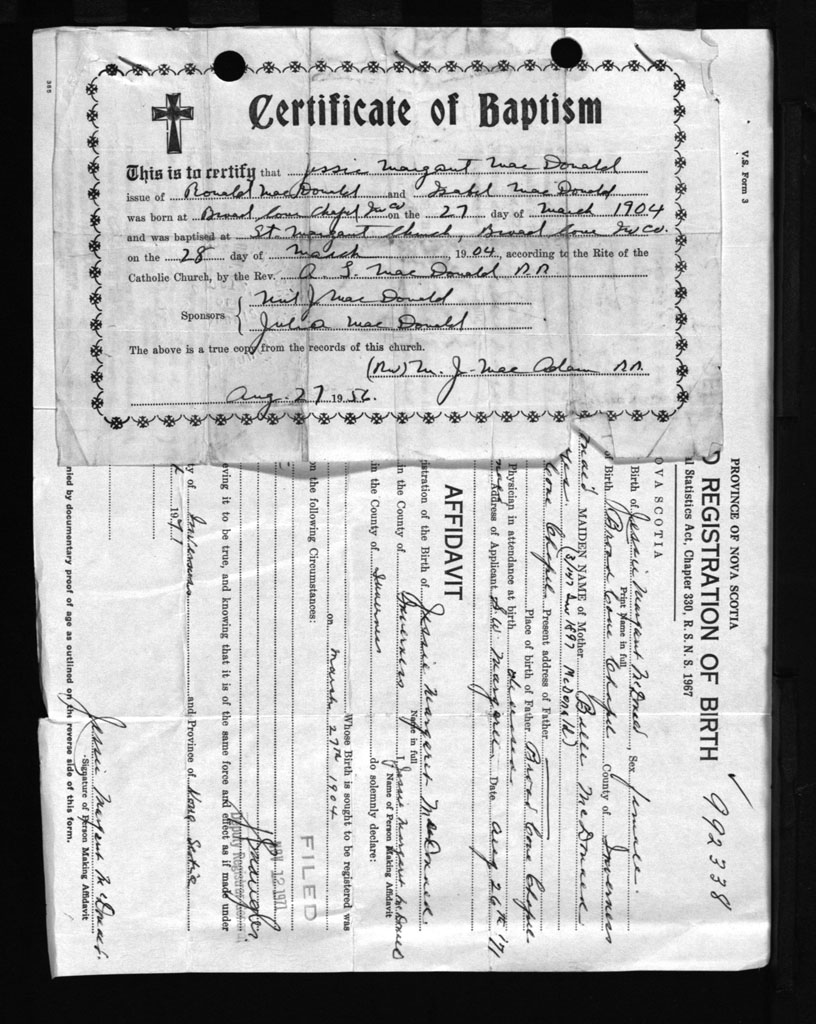 Certificate of Baptism
This is to certify that Jessie Margaret Mac Donald
issue of Ronald MacDonald and Isabel Mac Donald
was born at Broad Cove Chapel Inv Co on the 27 day of March 1904
and was baptised at St. Margaret Church, Broad Cove Inv Co.
on the 28 day of March, 1904, according to the Rite of the
Catholic Church, by the Rev. A. L. Mac Donald P.P.
Sponsors { Neil J Mac Donald
Julia Mac Donald
The above is a true copy from the records of this church.
(Rev) M. J. Mac Adam P.P.
Aug. 27 1956.
385
V.S. Form 3
PROVINCE OF NOVA SCOTIA
D REGISTRATION OF BIRTH
992338
l Statistics Act, Chapter 330, R.S.N.S. 1967
OVA SCOTIA
Birth of Jessie Margaret McDonald, Sex female
Print Name in full
of Birth Broad Cove Chapel County of Inverness
MAIDEN NAME of Mother Belle McDonald
Cove Chapel Present address of Father
Place of birth of Father Broad Cove Chapel
Physician in attendance at birth
Address of Applicant S.W. Margaree Date Aug 26th '71
AFFIDAVIT
gistration of the Birth of Jessie Margaret McDonald.
Name in full
in the County of Inverness I, Jessie Margaret McDonald
Name of Person Making Affidavit
in the County of Inverness do solemnly declare:
Whose Birth is sought to be registered was
on March 27th 1904
on the following Circumstances:
FILED
NOV 12 1971
Deputy Registrar
eving it to be true, and knowing that it is of the same force and effect as if made under
ty of Inverness and Province of Nova Scotia
1971
Jessie Margaret McDonald.
Signature of Person Making Affidavit
nied by documentary proof of age as outlined on the reverse side of this form.